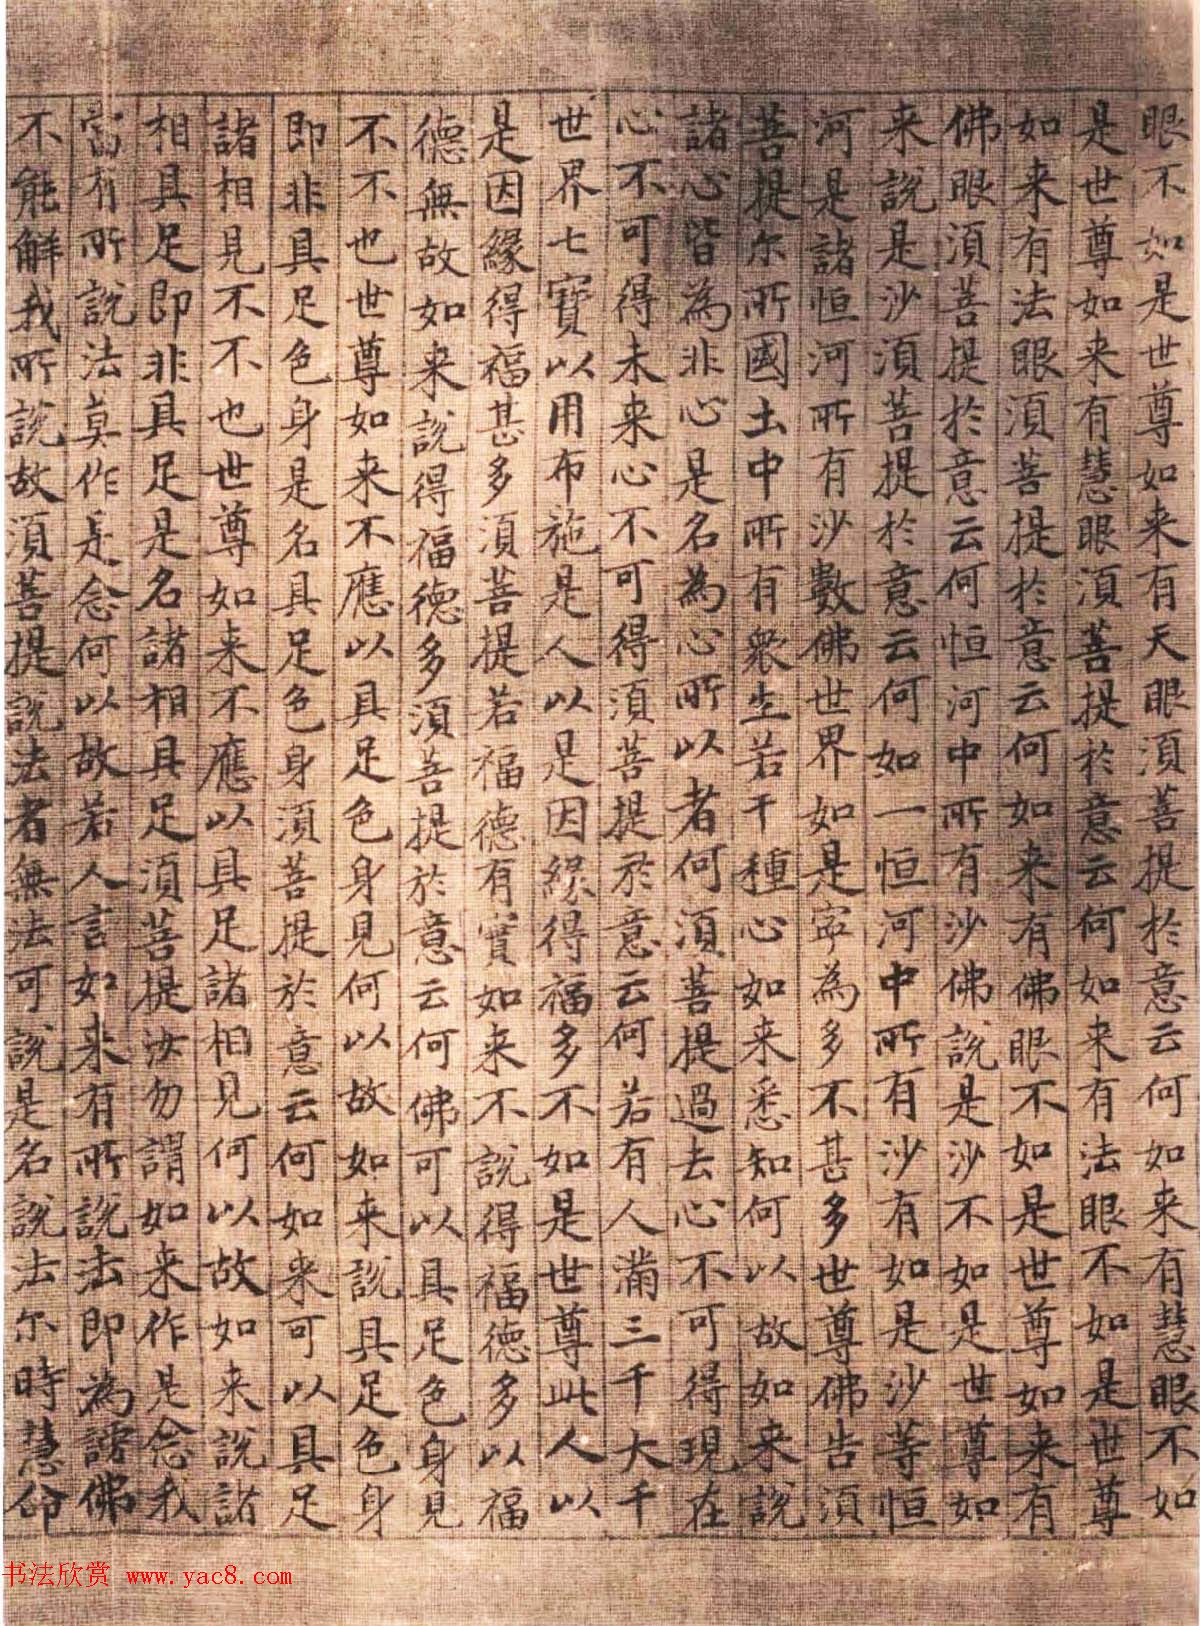 眼不如是世尊如来有天眼湏菩提於意云何如来有慧眼不如
是世尊如来有慧眼湏菩提於意云何如来有法眼不如是世尊
如来有法眼湏菩提於意云何如来有佛眼不如是世尊如来有
佛眼湏菩提於意云何恒河中所有沙佛說是沙不如是世尊如
来說是沙湏菩提於意云何如一恒河中所有沙有如是沙等恒
河是諸恒河所有沙數佛世界如是寧為多不甚多世尊佛告湏
菩提尔所國土中所有衆生若干種心如来悉知何以故如来說
諸心皆為非心是名為心所以者何湏菩提過去心不可得現在
心不可得未来心不可得湏菩提於意云何若有人滿三千大千
世界七寶以用布施是人以是因緣得福多不如是世尊此人以
是因緣得福甚多湏菩提若福德有實如来不說得福德多以福
德無故如来說得福德多湏菩提於意云何佛可以具足色身見
不不也世尊如来不應以具足色身見何以故如来說具足色身
即非具足色身是名具足色身湏菩提於意云何如来可以具足
諸相見不不也世尊如来不應以具足諸相見何以故如来說諸
相具足即非具足是名諸相具足湏菩提汝勿謂如来作是念我
當有所說法莫作是念何以故若人言如来有所說法即為謗佛
不能解我所說故湏菩提說法者無法可說是名說法尔時慧命
书法欣赏 www.yac8.com